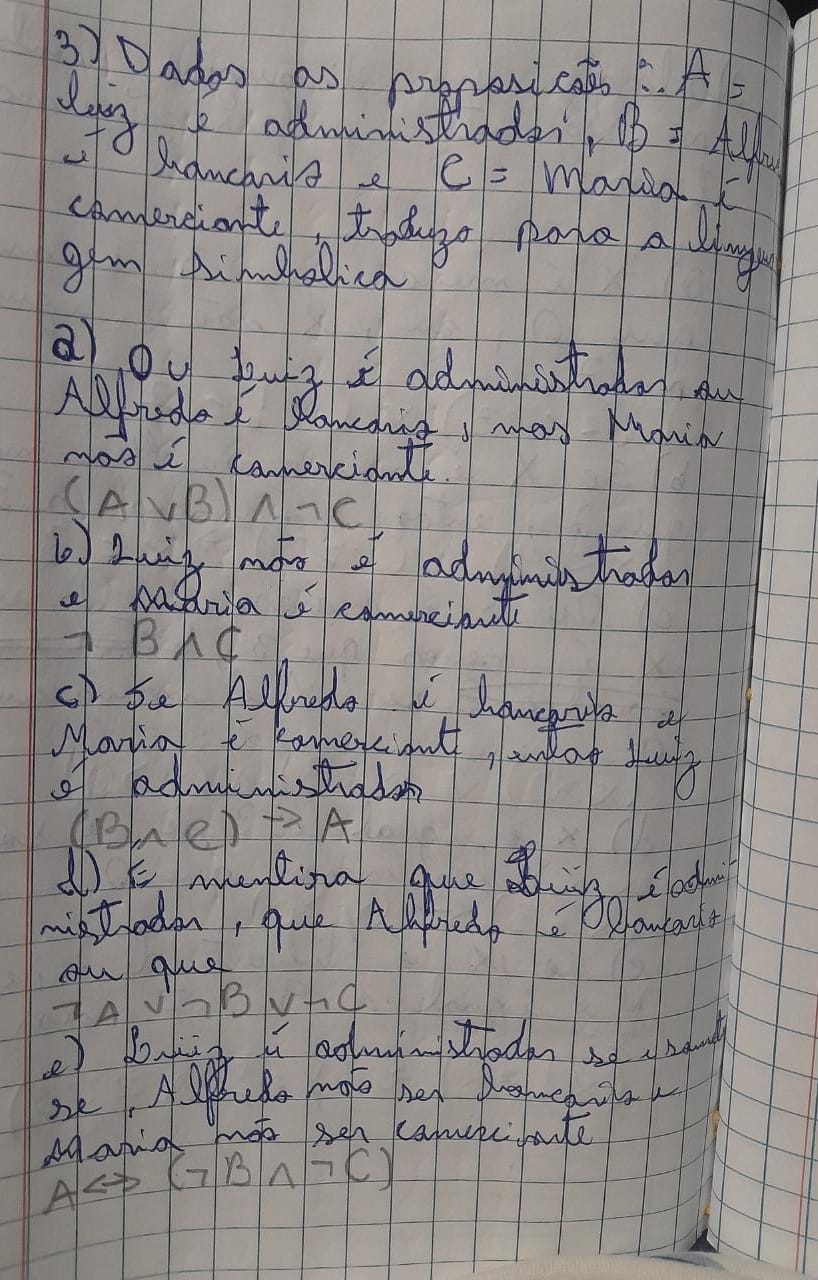 3) Dados as proposicões :. A =
Luiz é administrador, B = Alfre
é bancario e C = Maria é
comerciante, traduza para a lingua
gem simbolica
a) Ou Luiz é administrador ou
Alfredo é Bancario, mas Maria
não é comerciante.
(A ∨ B) ∧ ¬ C
b) Luiz não é administrador
e Maria é comerciante
¬ B ∧ C
c) Se Alfredo é bancario e
Maria é comerciante, então Luiz
é administrador
(B ∧ C) → A
d) É mentira que Luiz é admi
nistrador, que Alfredo é Bancario
ou que
¬ A ∨ ¬ B ∨ ¬ C
e) Luiz é administrador se e soment
se, Alfredo não ser bancario e
Maria não ser comerciante
A ↔ (¬ B ∧ ¬ C)